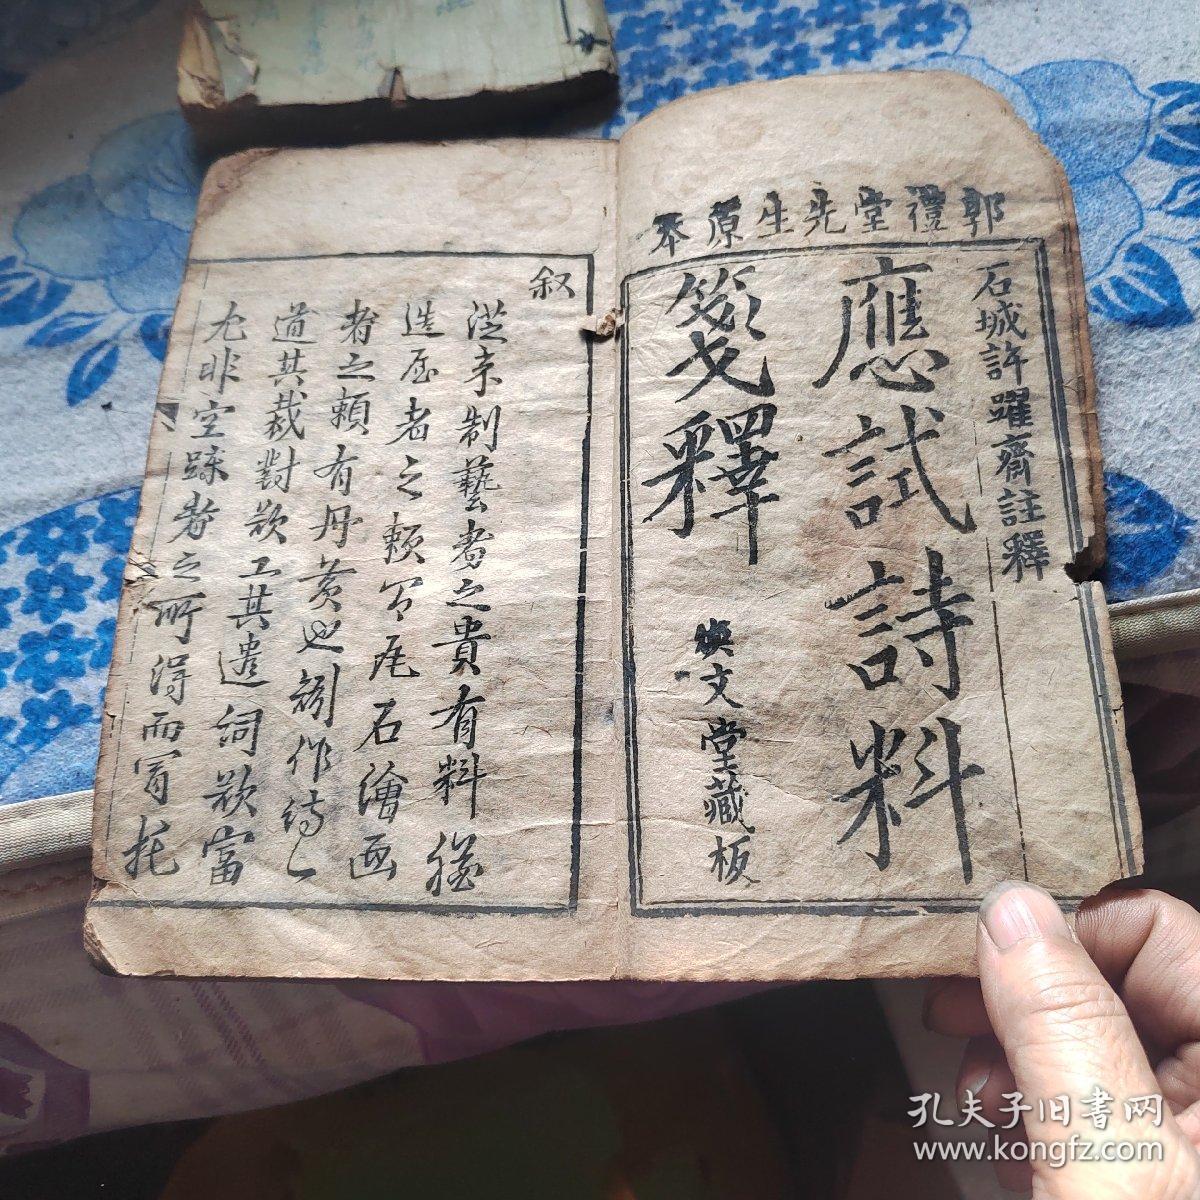 郭禮堂先生原本
石城許躍齋註釋
應試詩料
箋釋
煥文堂藏板
叙
從來制藝者之貴有料猶
造屋者之賴有瓦石繪画
者之賴有丹黄也詞作詩之
道其裁對欲工其遣詞欲富
尤非空疎者之所得而冒托
孔夫子旧书网
www.kongfz.com